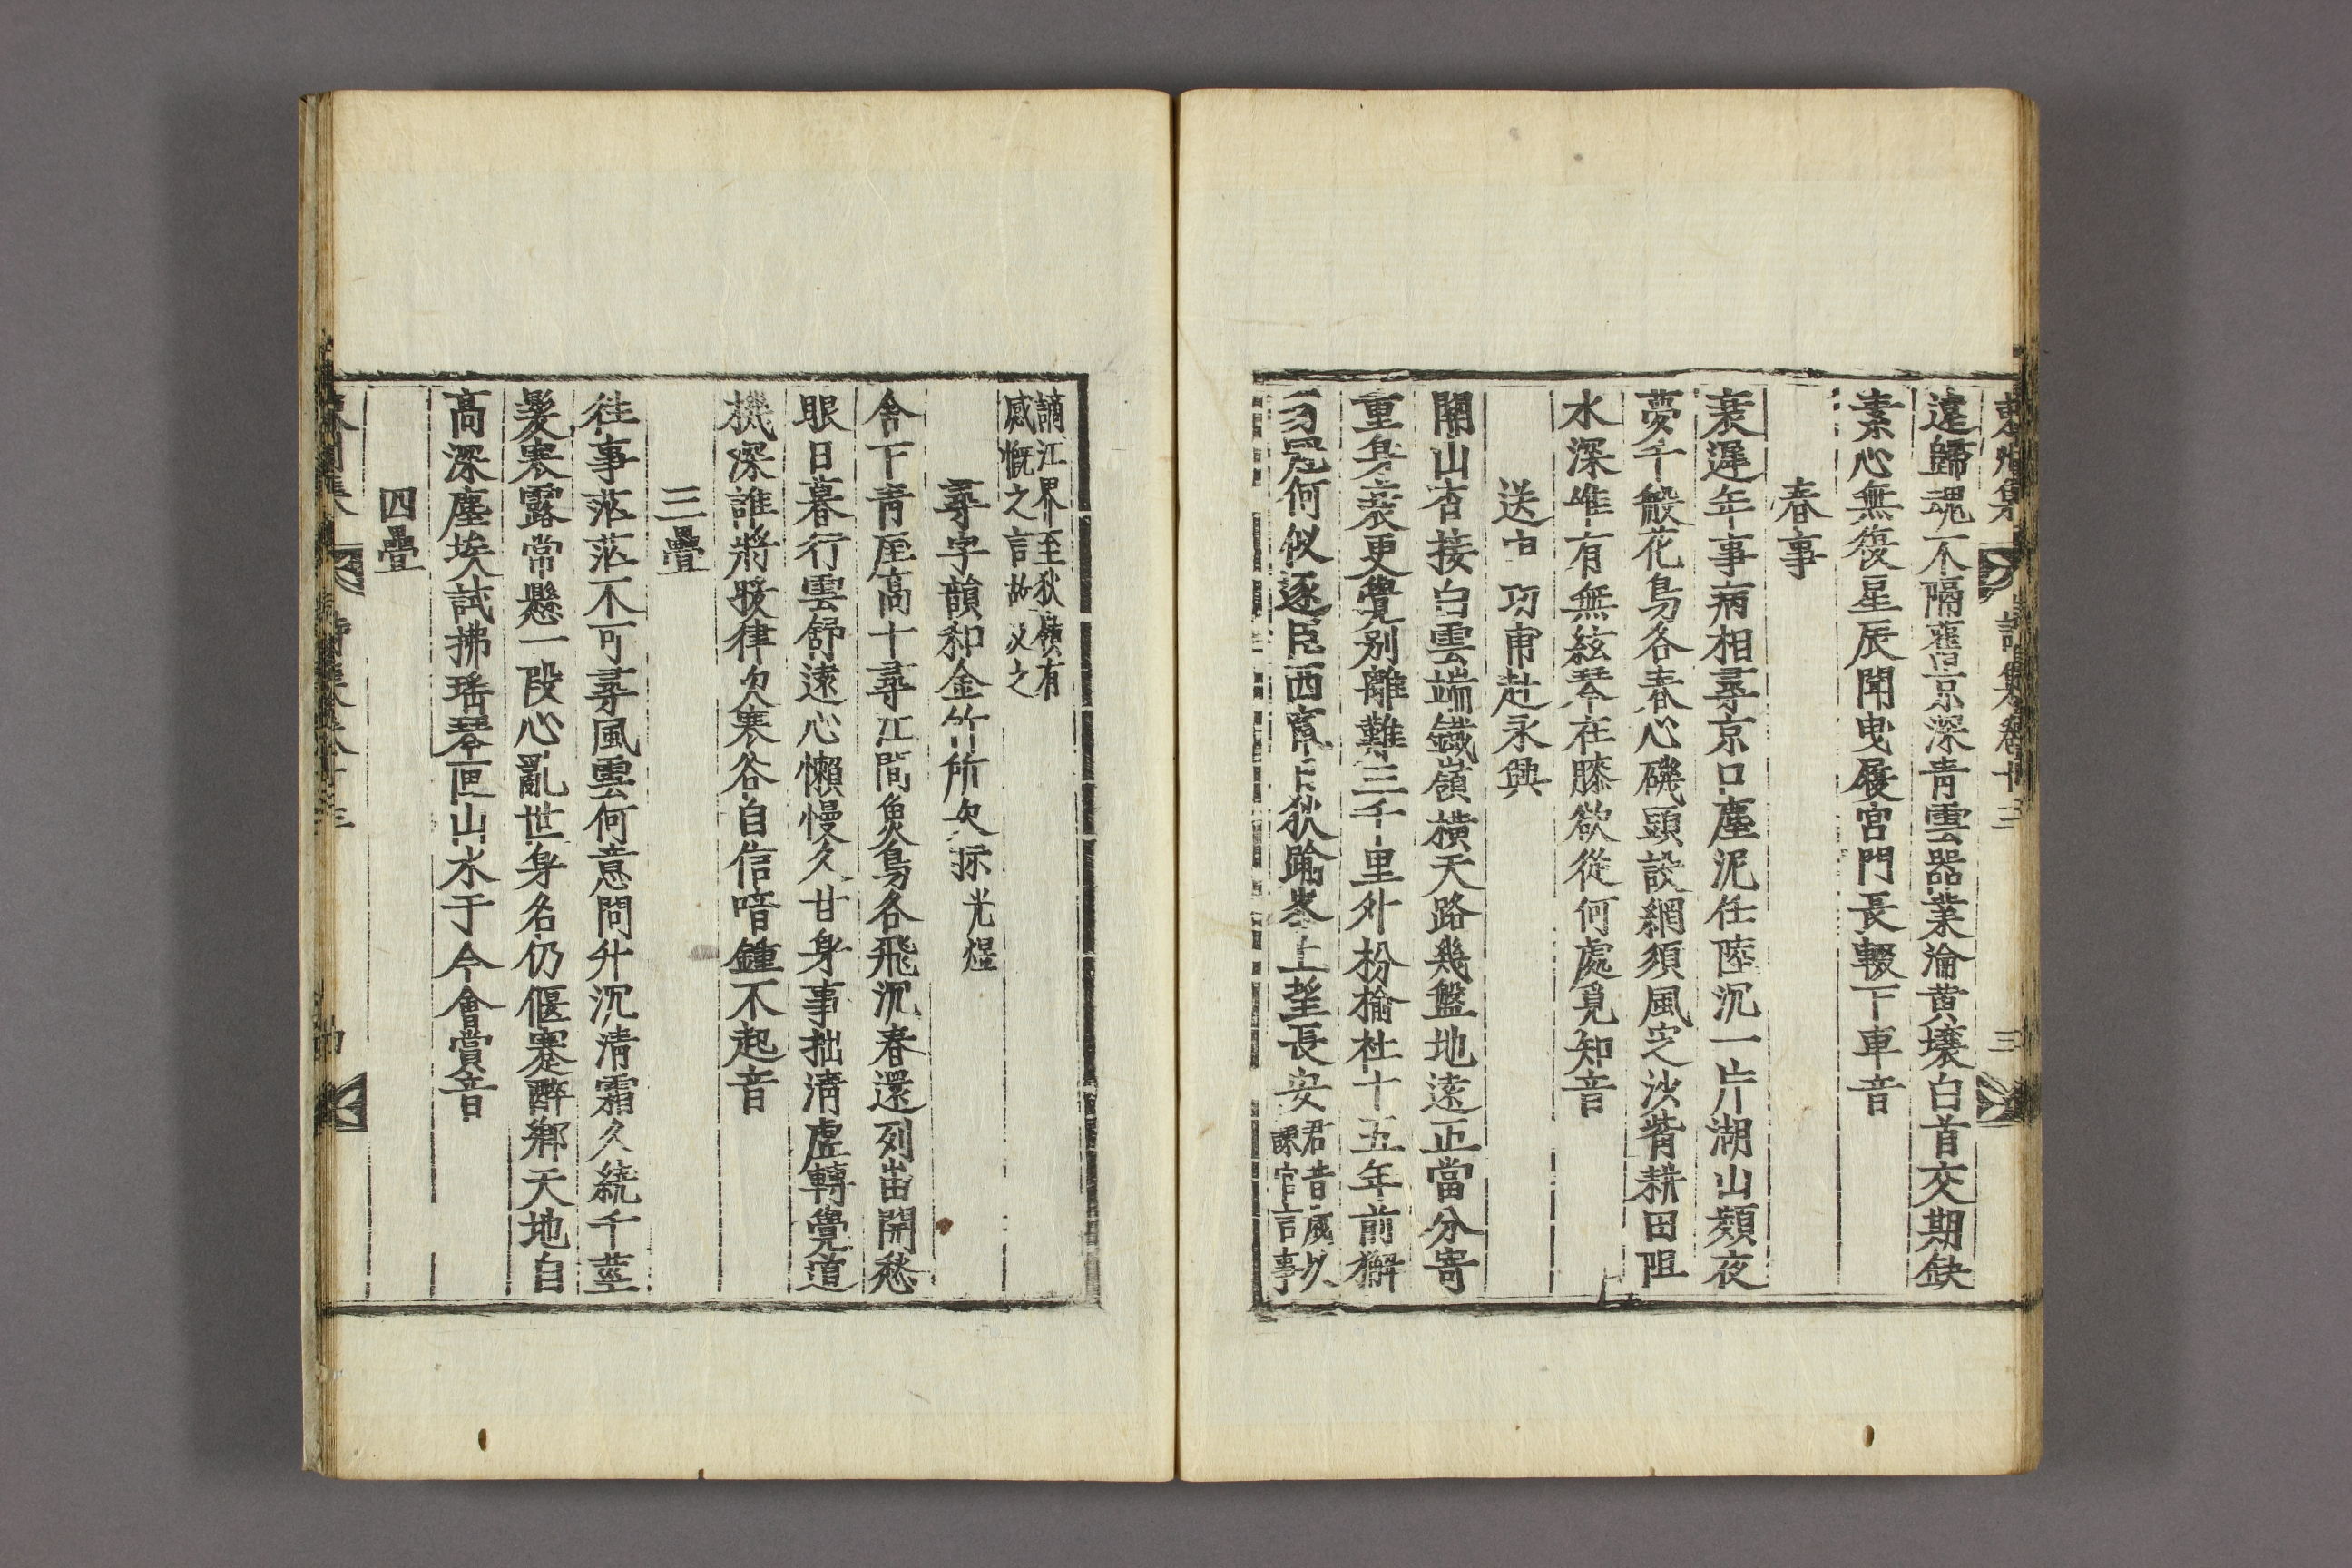 遠歸魂不隔舊京深靑雲器業淪黄壤白首交期缺
素心無復星辰聞曳履宮門長輟下車音
春事
衰遲年事病相尋京口塵泥任陸沉一片湖山頻夜
夢千般花鳥各春心磯頭設網須風定沙觜耕田阻
水深唯有無絃琴在膝欲從何處覓知音
送 功甫赴永興
關山杳接白雲端鐵嶺橫天路幾盤地遠正當分寄
重身衰更覺別離難三千里外枌楡社十五年前獬
豸冠何似逐臣西竄日狄踰峯上望長安
君昔歲以
諫官言事
謫江界至狄嶺有
感慨之言故及之
尋字韻和金竹所 光煜
舍下靑厓高十尋江間魚鳥各飛沉春還列岫開愁
眼日暮行雲舒遠心懶慢久甘身事拙淸虛轉覺道
機深誰將暖律吹寒谷自信喑鍾不起音
三疊
往事茫茫不可尋風雲何意問升沉淸霜久繞千莖
髮寒露常懸一段心亂世身名仍偃蹇醉鄕天地自
高深塵埃試拂瑤琴匣山水于今會賞音
四疊